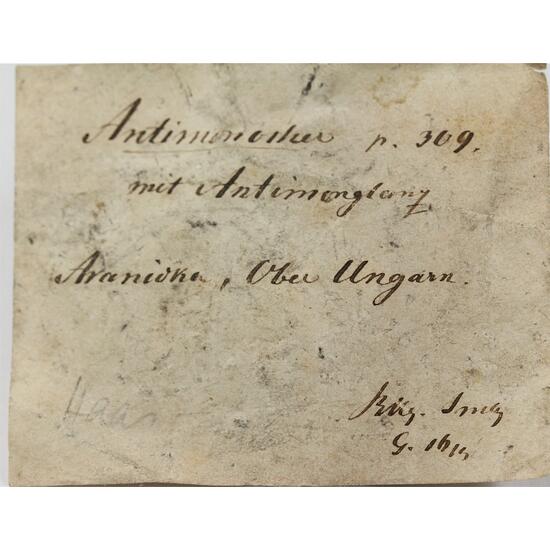 Antimonocker p. 309.
mit Antimonglanz
Aranidka, Ober Ungarn.
Ha
G.